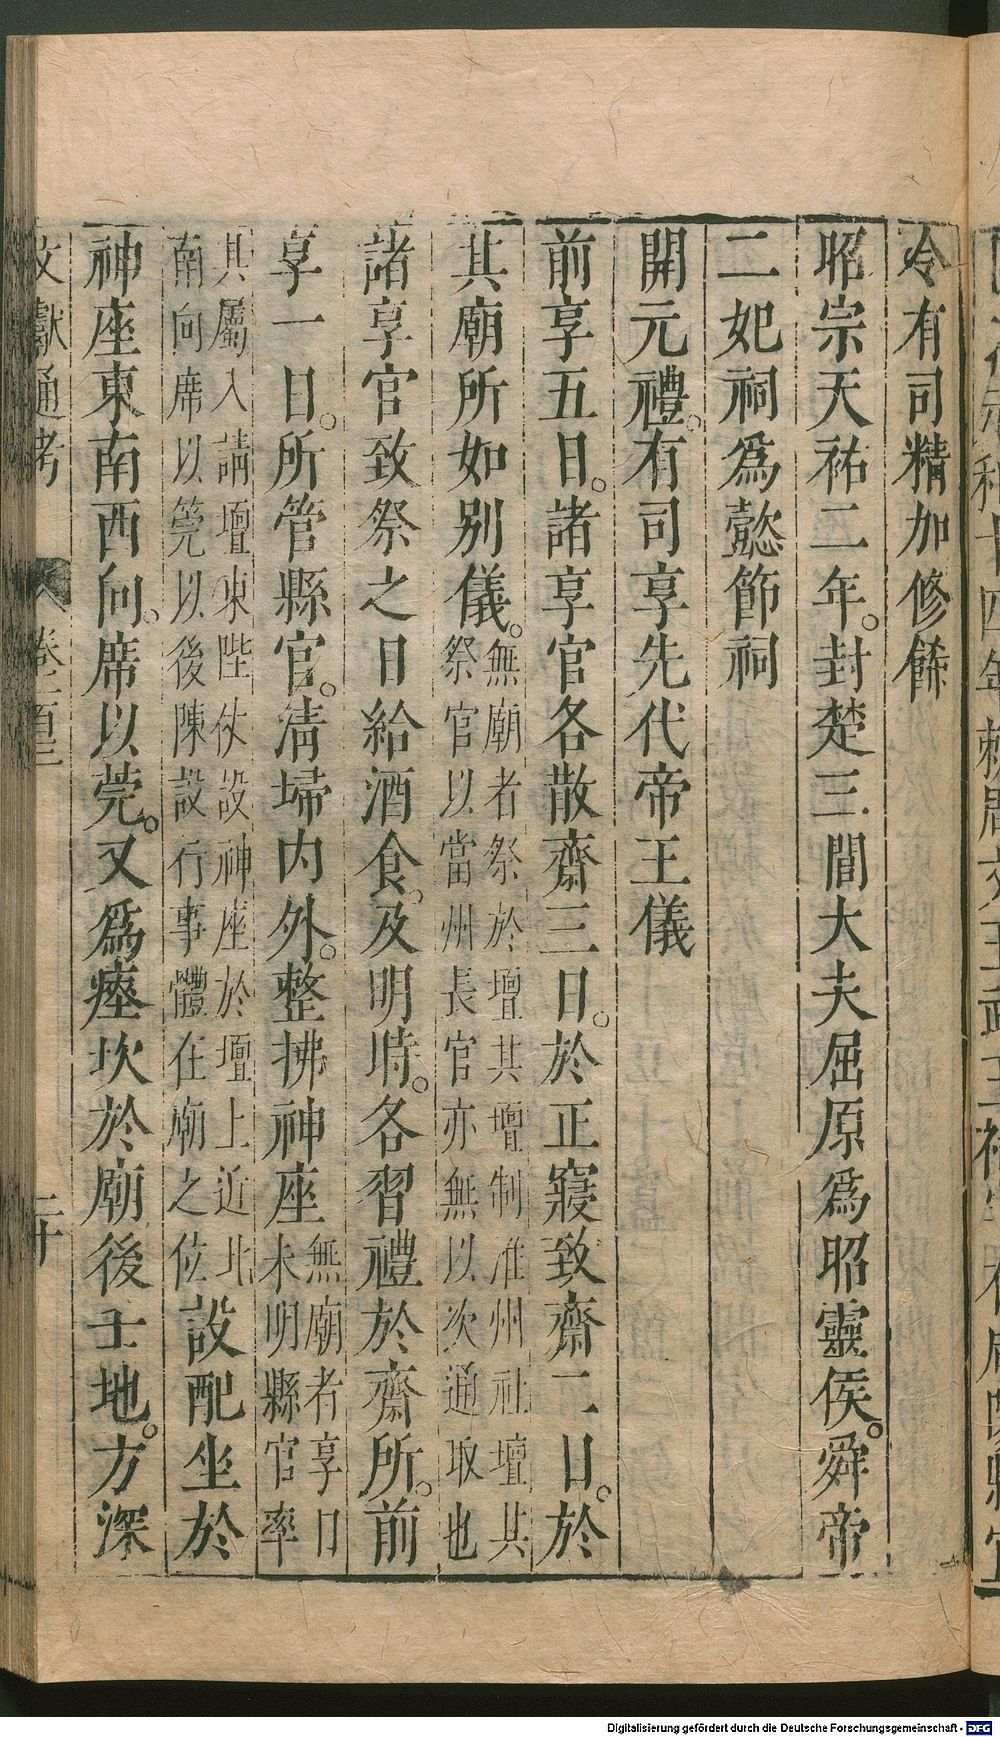 令有司精加修餙
昭宗天祐二年。封楚三閭大夫屈原爲昭靈侯。舜帝
二妃祠爲懿節祠
開元禮。有司享先代帝王儀
前享五日。諸享官各散齋三日。於正寢致齋二日。於
其廟所如別儀。無廟者祭於壇其壇制准州社壇其
祭官以當州長官亦無以次通取也
諸享官致祭之日給酒食。及明時。各習禮於齋所。前
享一日。所管縣官。清埽內外。整拂神座無廟者享日
未明縣官率
其屬入請壇東陛仗設神座於壇上近北
南向席以筦以後陳設行事體在廟之位設配坐於
神座東南西向。席以莞。又爲瘞坎於廟後壬地。方深
文獻通考 卷一百三 二十
Digitalisierung gefördert durch die Deutsche Forschungsgemeinschaft - DFG